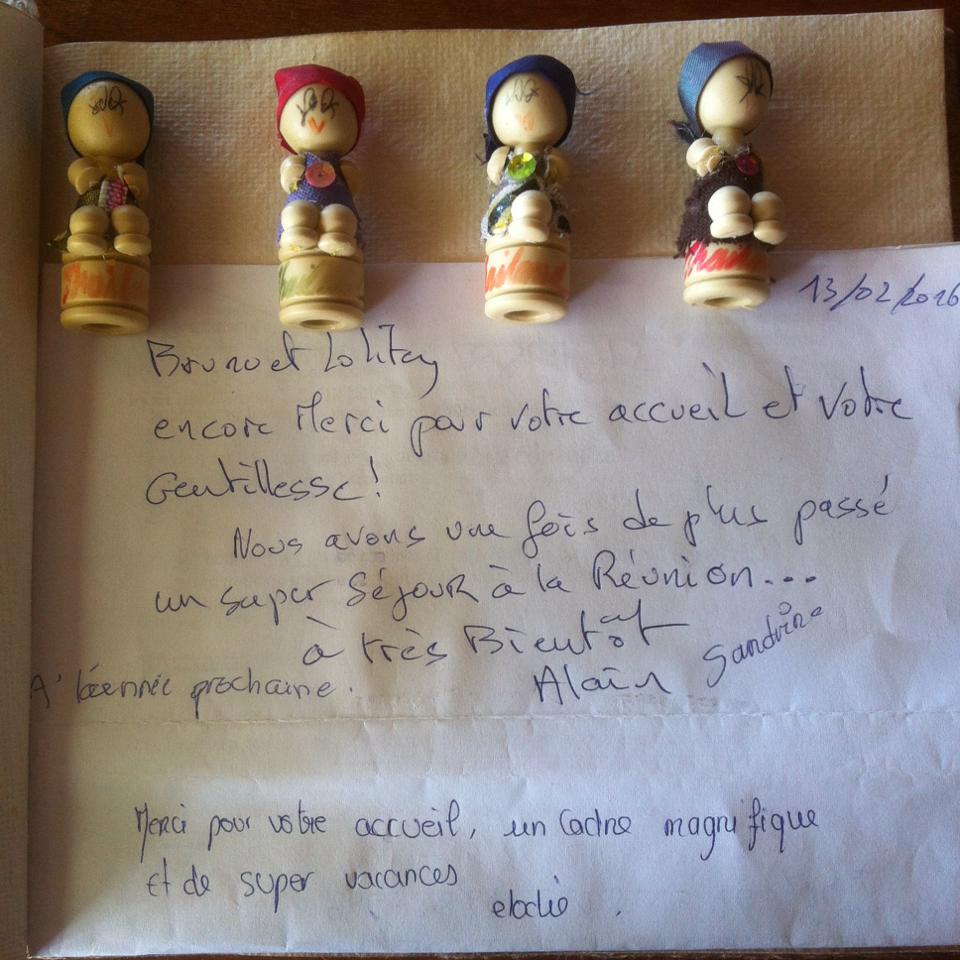 13/02/2016
Bruno et
encore Merci pour votre accueil et votre
Gentillesse!
Nous avons une fois de plus passé
un super Séjour à la Réunion...
à très Bientôt
Sandrine
A' l'année prochaine.
Alain
Merci pour votre accueil, un cadre magnifique
Et de super vacances
elodie